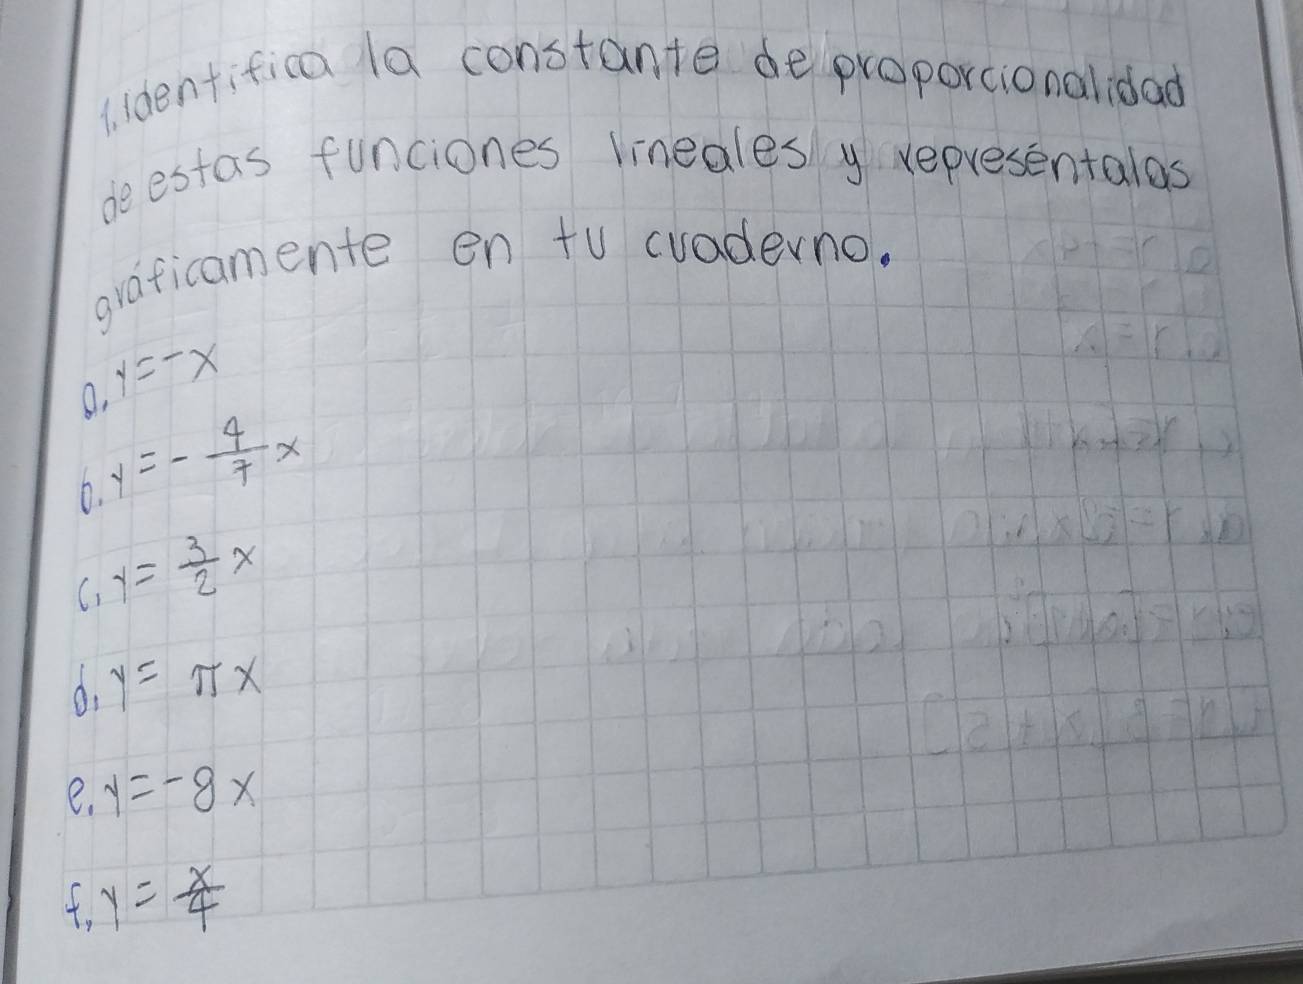 1. Identifica la constante de proporcionalidad
de estas funciones lineales y represéntalas
gráficamente en tu cuaderno.
a. y = -x
b. y = - 4/7 x
c. y = 3/2 x
d. y = πx
e. y = -8x
f. y = x/4